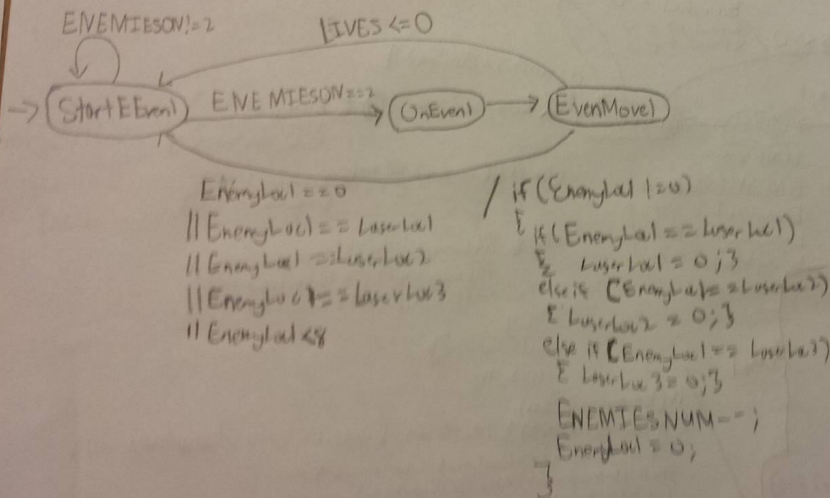 ENEMIESON!=2
LIVES<=0
StartEEven1
ENEMIESON==2
OnEven1
EvenMove1
EnemyLoc1==0
||EnemyLoc1==LaserLoc1
||EnemyLoc1==LaserLoc2
||EnemyLoc1==LaserLoc3
||EnemyLoc1<8
/ if(EnemyLoc1!=0)
{
if(EnemyLoc1==LaserLoc1)
{ LaserLoc1=0;}
else if (EnemyLoc1==LaserLoc2)
{ LaserLoc2=0;}
else if (EnemyLoc1==LaserLoc3)
{ LaserLoc3=0;}
ENEMIESNUM--;
EnemyLoc1=0;
}